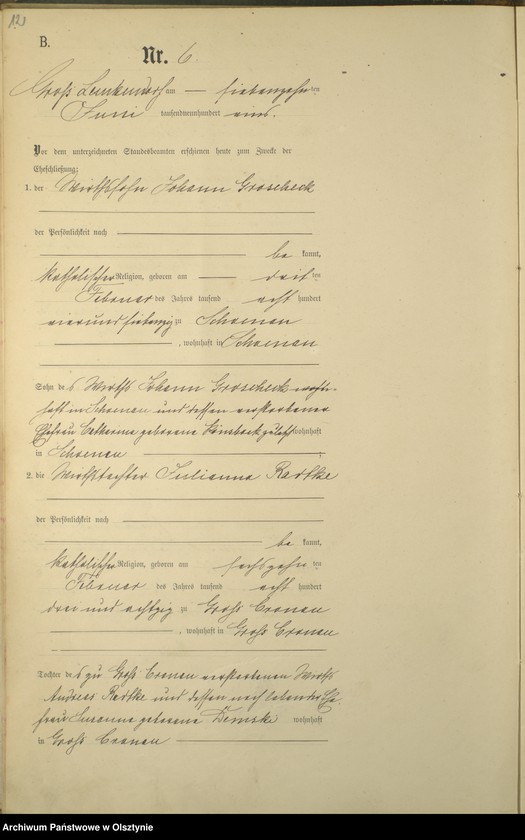 12
B.
Nr. 6
Groß Lemkendorf am — siebenzehn ten
Juni tausendneunhundert eins.
Vor dem unterzeichneten Standesbeamten erschienen heute zum Zwecke der
Eheschließung:
1. der Wirthssohn Johann Groscheck
der Persönlichkeit nach
be kannt,
katholischer Religion, geboren am — drit ten
Februar des Jahres tausend acht hundert
vierundsiebenzig zu Schoenau
, wohnhaft in Schoenau
Sohn des Wirths Johann Groscheck wohn-
haft in Schoenau und dessen verstorbener
Ehefrau Catharina geborene zuletzt wohnhaft
in Schoenau
2. die Wirthstochter Julianna Radtke
der Persönlichkeit nach
be kannt,
katholischer Religion, geboren am sechszehn ten
Februar des Jahres tausend acht hundert
drei und achtzig zu Groß Cronau
, wohnhaft in Groß Cronau
Tochter des zu Groß Cronau verstorbenen Wirths
Andreas Radtke und dessen noch lebender Ehe
frau Susanna geborene Demske wohnhaft
in Groß Cronau
Archiwum Państwowe w Olsztynie